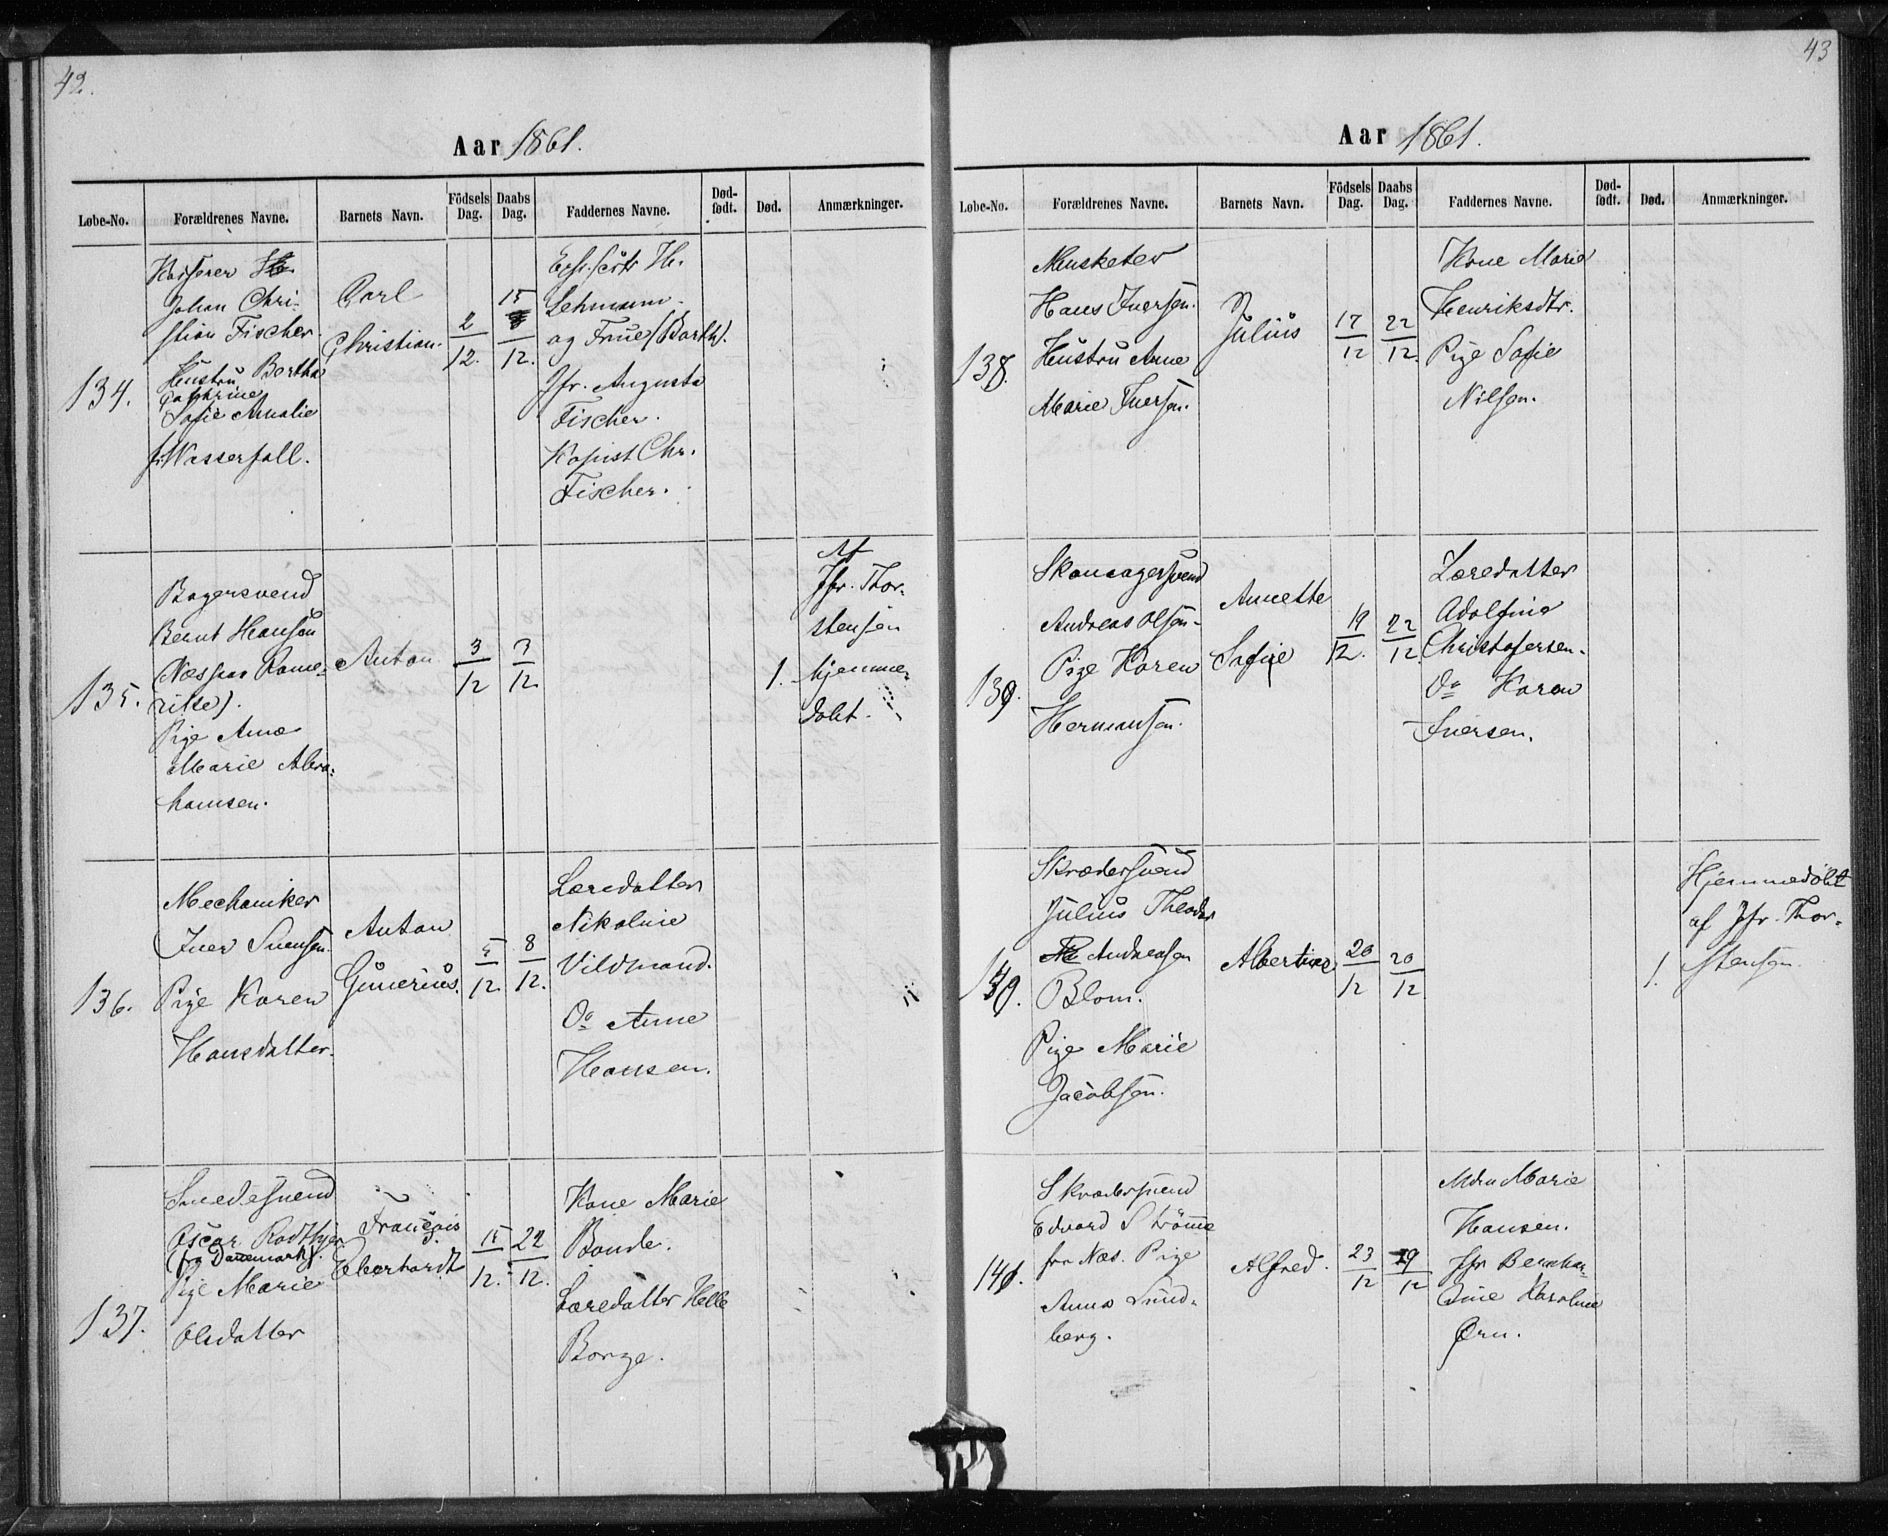 42.
Aar 1861.
Løbe-No. Forældrenes Navne. Barnets Navn. Födsels Dag. Daabs Dag. Faddernes Navne. Død-født. Død. Anmærkninger.
134.
Kasserer
Johan Chri-
stian Fischer.
Hustru Bertha
Cathrine
Sofie Amalie
f. Wasserfall.
Carl
Christian.
2/12.
15/12.
He.
Lehmann.
og Frue (Barth).
Jfr. Augusta
Fischer.
Kopist Chr.
Fischer.
135.
Bagersvend
Bernt Hansen
(Næs paa Rome-
rike).
Pige Anne
Marie Abra-
hamsen.
Anton
3/12
3/12
1.
Af
Jfr. Thor-
stensen
hjemme-
døbt.
136.
Mechaniker
Iver Svensen.
Pige Karen
Hansdatter.
Anton
Gunerius.
5/12.
8/12.
Læredatter
Nikoline
Vildmand.
Do Anne
Hansen.
137.
Smedesvend
Oscar
(fra Danemark).
Pige Marie
Olsdatter
François
Eberhardt
15/12.
22/12.
Kone Marie
Bonde.
Læredatter Helle
Borge.
43
Aar 1861.
Løbe-No. Forældrenes Navne. Barnets Navn. Födsels Dag. Daabs Dag. Faddernes Navne. Død-født. Død. Anmærkninger.
138.
Musketer
Hans Iversen.
Hustru Anne
Marie Iversen.
Julius
17/12
22/12.
Kone Marie
Henriksdtr.
Pige Sofie
Nilsen.
139.
Skomagersvend
Andreas Olsen.
Pige Karen
Hermansen.
Annette
Sofie
19/12.
22/12.
Læredatter
Adolfine
Christofersen.
Do Karen
Iversen.
140.
Skrædersvend
Julius Theodor
Andreasen
Blom.
Pige Marie
Jacobsen.
Albertine
20/12
20/12
1.
Hjemmedøbt
af Jfr. Thor-
stensen.
141.
Skrædersvend
Edvard Strömme
fra Næs. Pige
Anna Lund-
berg.
Alfred.
23/12
29/12
Mdm Marie
Hansen.
Jfr Bernhar-
dine Karoline
Ørn.